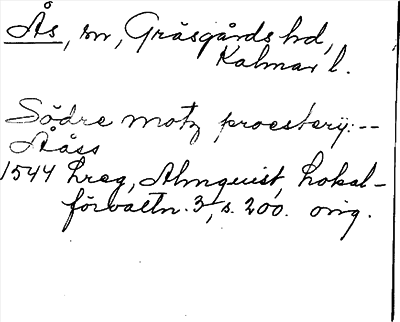 Ås, sn, Gräsgårds hd,
Kalmar l.
Södre motz proestery:--
Åååss
1544 hreg, Almquist, Lokal-
förvaltn. 3, s. 200. orig.